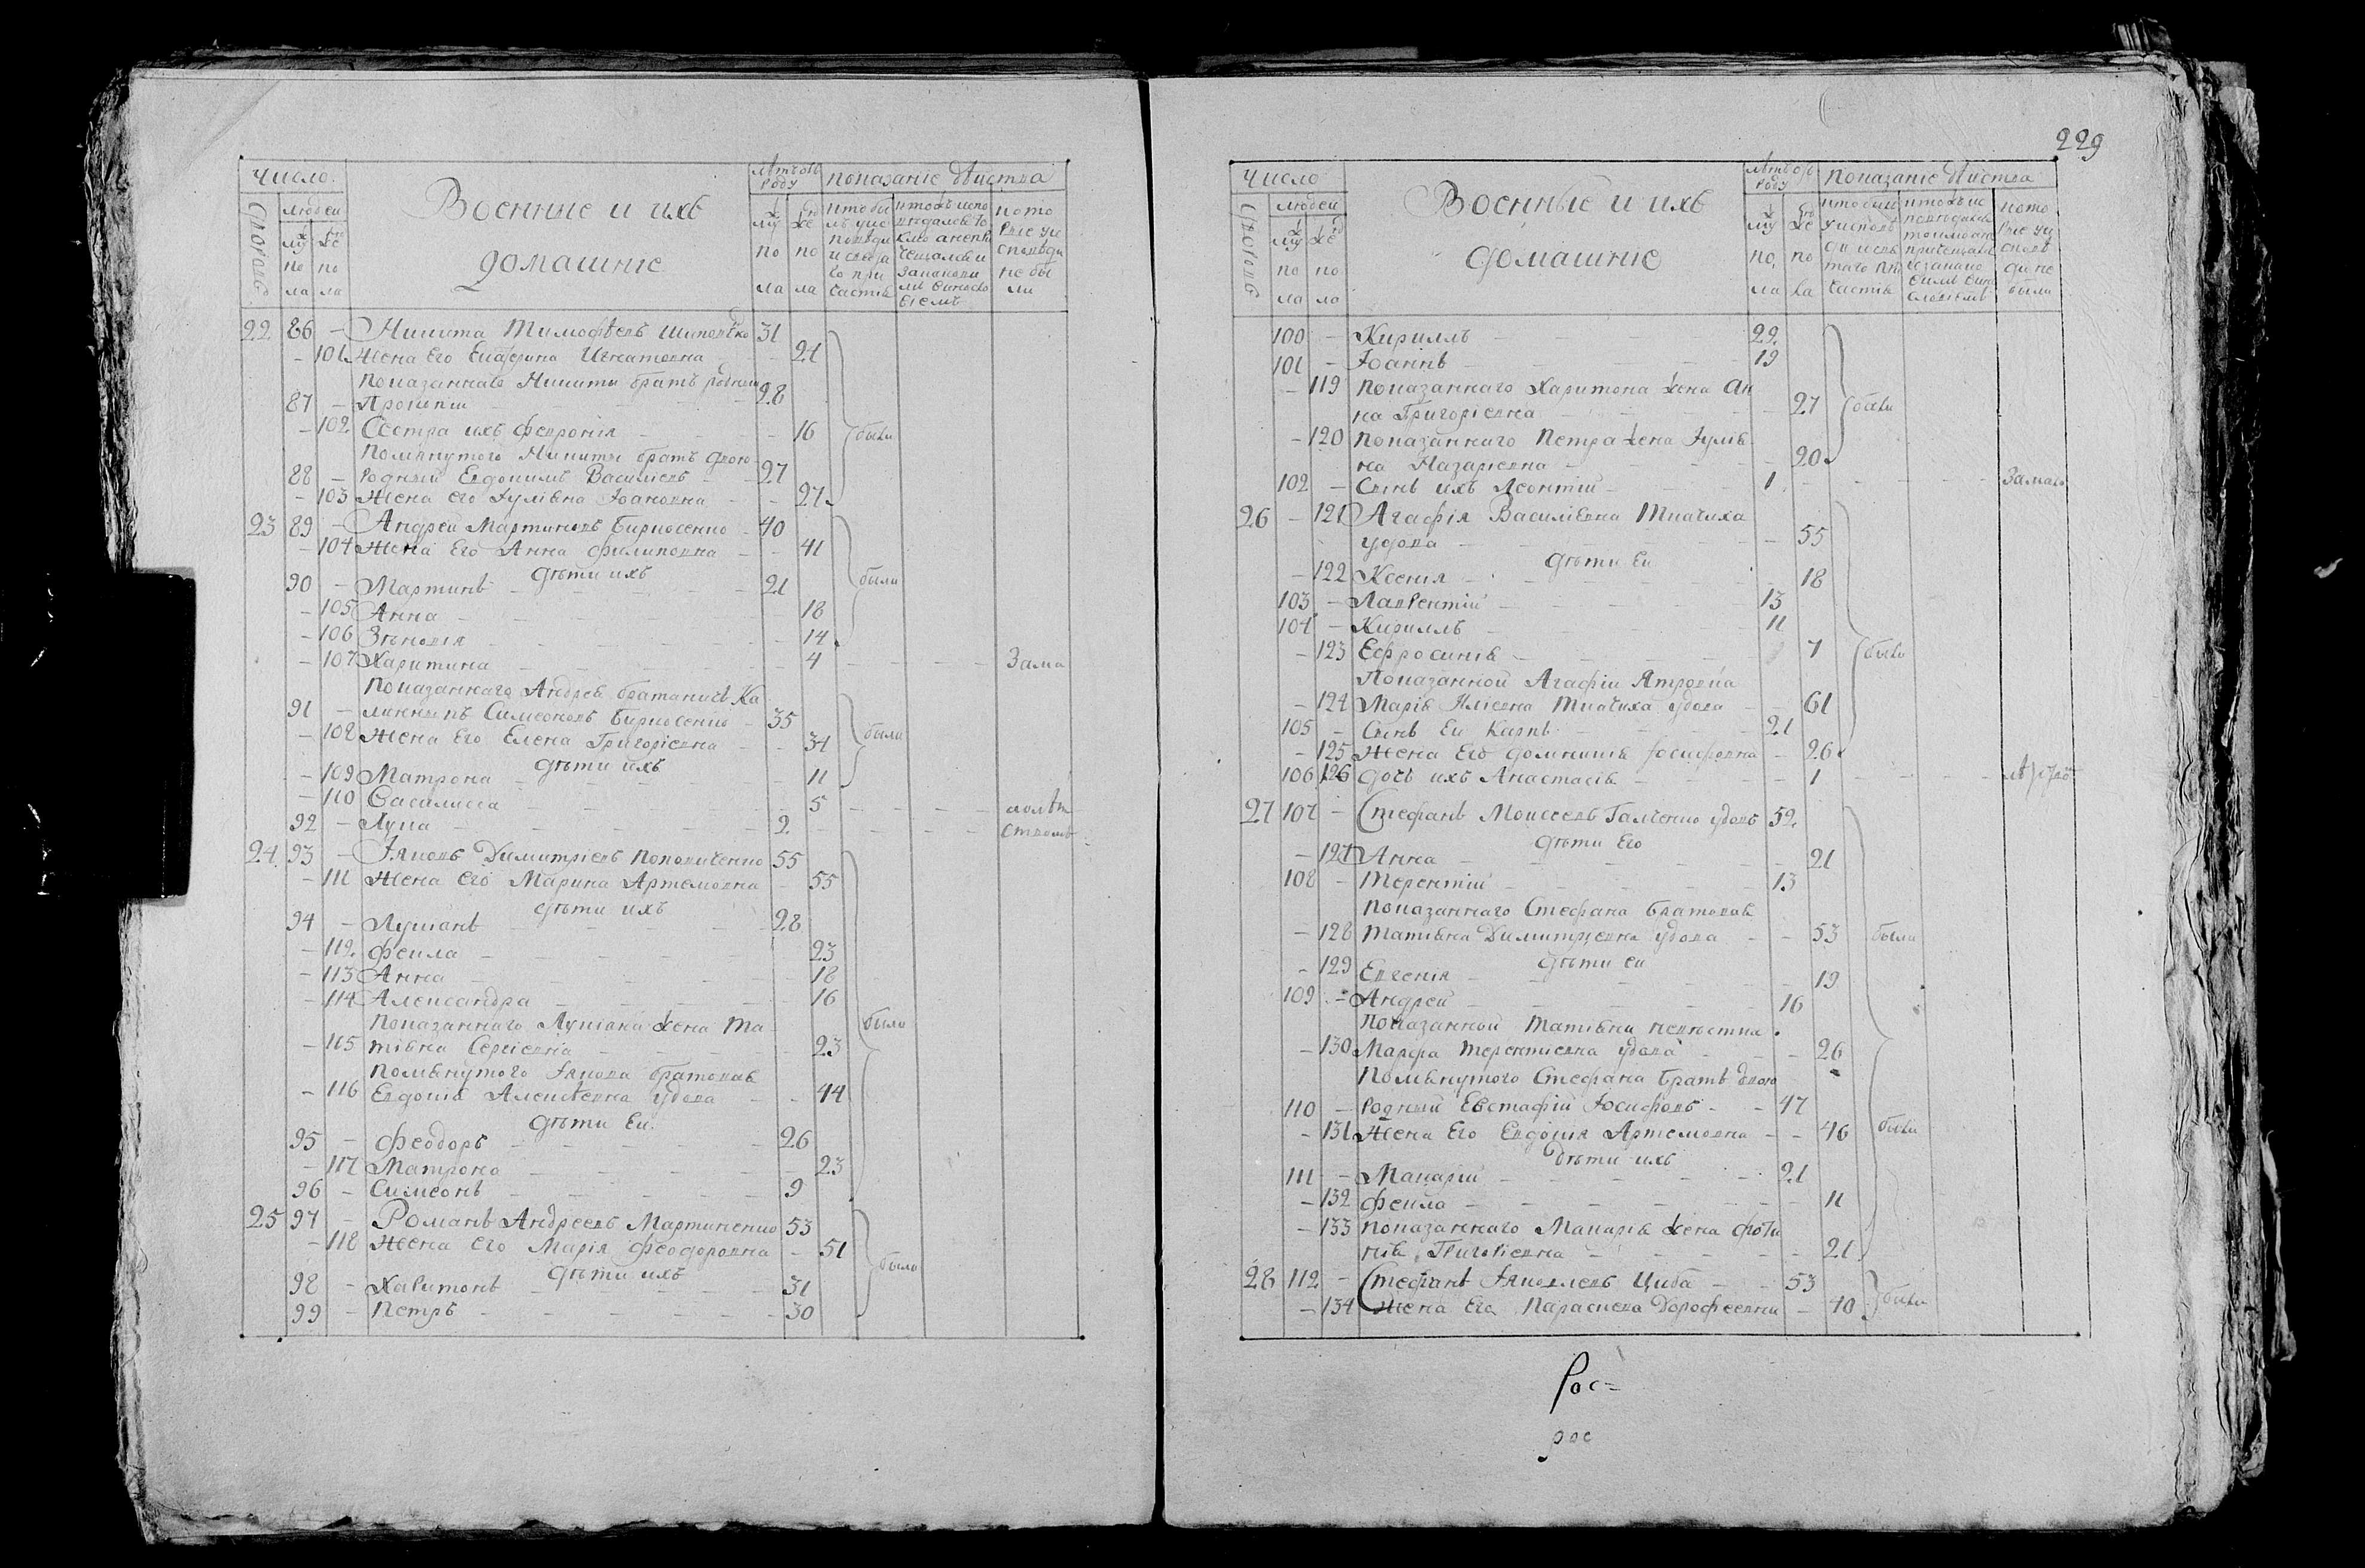 число
Военные и ихъ
домашние
Лѣтъ отъ роду
показание дѣиства
дворовъ
людей
мужеска полу
женска полу
22 86 – Никита Тимофѣевъ 31
– 101 Жена его Екатерина Игнатовна – 21
показаннаго Никиты братъ родныи
87 – Прокопии – 28
– 102 Сестра ихъ Феврония – 16 были
Помянутого Никиты братъ двою
88 – родныи Евдокимъ Василиевъ – 27
– 103 Жена его Iулияна Iоановна – 27
23 89 – Андреи Мартиновъ Бирюсенко – 40
– 104 Жена Его Анна Филиповна – 41
дѣти ихъ
90 – Мартинъ – 21 были
– 105 Анна – 18
– 106 Зѣновия – 14
– 107 Харитина – 4 – Зама
Показаннаго Андрея братаничъ Ка
91 – линникъ Симеоновъ Бирюсенко – 35
– 108 Жена Его Елена Григориевна – 34 были
дѣти ихъ
– 109 Матрона – 11
– 110 Василиса – 5 – лолѣт
92 – Лука – 2 – ством
24 93 – Iаковъ Димитриевъ Поповиченко 55
– 111 Жена его Марина Артемовна – 55
дѣти ихъ
94 – Лукианъ – 28
– 112 Фекла – 23
– 113 Анна – 18
– 114 Александра – 16
Показаннаго Лукиана жена Та были
– 115 тияна Сергиевна – 23
Помянутого Iакова братовая
– 116 Евдокия Алексѣевна удова – 44
дѣти Еи
95 – Феодоръ – 26
– 117 Матрона – 23
96 – Симеонъ – 9
25 97 – Романъ Андреевъ Мартиненко 53
– 118 Жена его Мария Феодоровна – 51
дѣти ихъ были
98 – Харитонъ – 31
99 – Петръ – 30
229
число
Военные и ихъ
домашние
Лѣтъ отъ роду
Показание дѣиства
дворовъ
людей
мужеска полу
женска полу
100 – Кириллъ – 29
101 – Iоаннъ – 19
– 119 показаннаго Харитона жена Ан
на Григориевна – 27 были
– 120 показаннаго Петра жена Iулия
на Назариевна – 20
102 – Синъ ихъ Леонтии – 1 – Замало
26 – 121 Агафия Василиевна Ткачиха
удова – 55
дѣти Еи
– 122 Ксения – 18
103 – Лаврентии – 13
104 – Кириллъ – 11
– 123 Ефросиния – 7 были
Показанной Агафии Ятровка
– 124 Мария Илиевна Ткачиха удова – 61
105 – Синъ Еи Карпъ – 21
– 125 Жена Его Домникия Iосифовна – 26
106 126 дочъ ихъ Анастасия – 1
27 107 – Стефанъ Моисеевъ Галченко удовъ 52
дѣти Его
– 127 Анна – 21
108 – Терентии – 13
показаннаго Стефана братовая
– 128 Татияна Димитриевна удова – 53 были
дѣти еи
– 129 Евгения – 19
109 – Андреи – 16
Показанной Татияни невѣстка
– 130 Марфа Терентиевна удова – 26
Помянутого Стефана братъ двою
110 – родныи Евстафии Iосифовъ – 47
– 131 Жена Его Евдокия Артемовна – 46 были
дѣти ихъ
111 – Макарии – 21
– 132 Фекла – 11
– 133 показаннаго Макария жена Фоти
ния Григориевна – 21
28 112 – Стефанъ Iаковлевъ Циба – 53
– 134 Жена Его Параскева Дорофеевна – 40 были
Рос=
рос